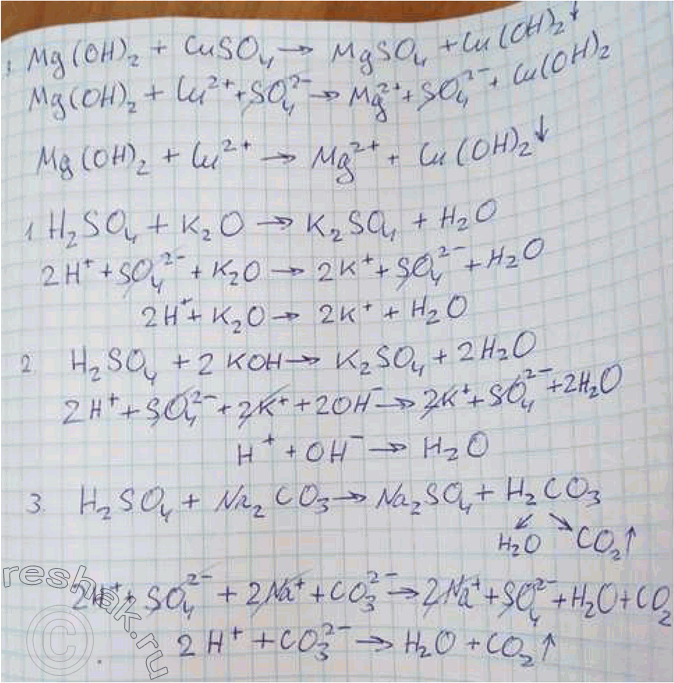 Mg(OH)₂ + CuSO₄ → MgSO₄ + Cu(OH)₂↓
Mg(OH)₂ + Cu²⁺ + SO₄²⁻ → Mg²⁺ + SO₄²⁻ + Cu(OH)₂
Mg(OH)₂ + Cu²⁺ → Mg²⁺ + Cu(OH)₂↓
1. H₂SO₄ + K₂O → K₂SO₄ + H₂O
2H⁺ + SO₄²⁻ + K₂O → 2K⁺ + SO₄²⁻ + H₂O
2H⁺ + K₂O → 2K⁺ + H₂O
2 H₂SO₄ + 2KOH → K₂SO₄ + 2H₂O
2H⁺ + SO₄²⁻ + 2K⁺ + 2OH⁻ → 2K⁺ + SO₄²⁻ + 2H₂O
H⁺ + OH⁻ → H₂O
3. H₂SO₄ + Na₂CO₃ → Na₂SO₄ + H₂CO₃
↙ ↘
H₂O CO₂↑
2H⁺ + SO₄²⁻ + 2Na⁺ + CO₃²⁻ → 2Na⁺ + SO₄²⁻ + H₂O + CO₂
2H⁺ + CO₃²⁻ → H₂O + CO₂↑
© reshak.ru